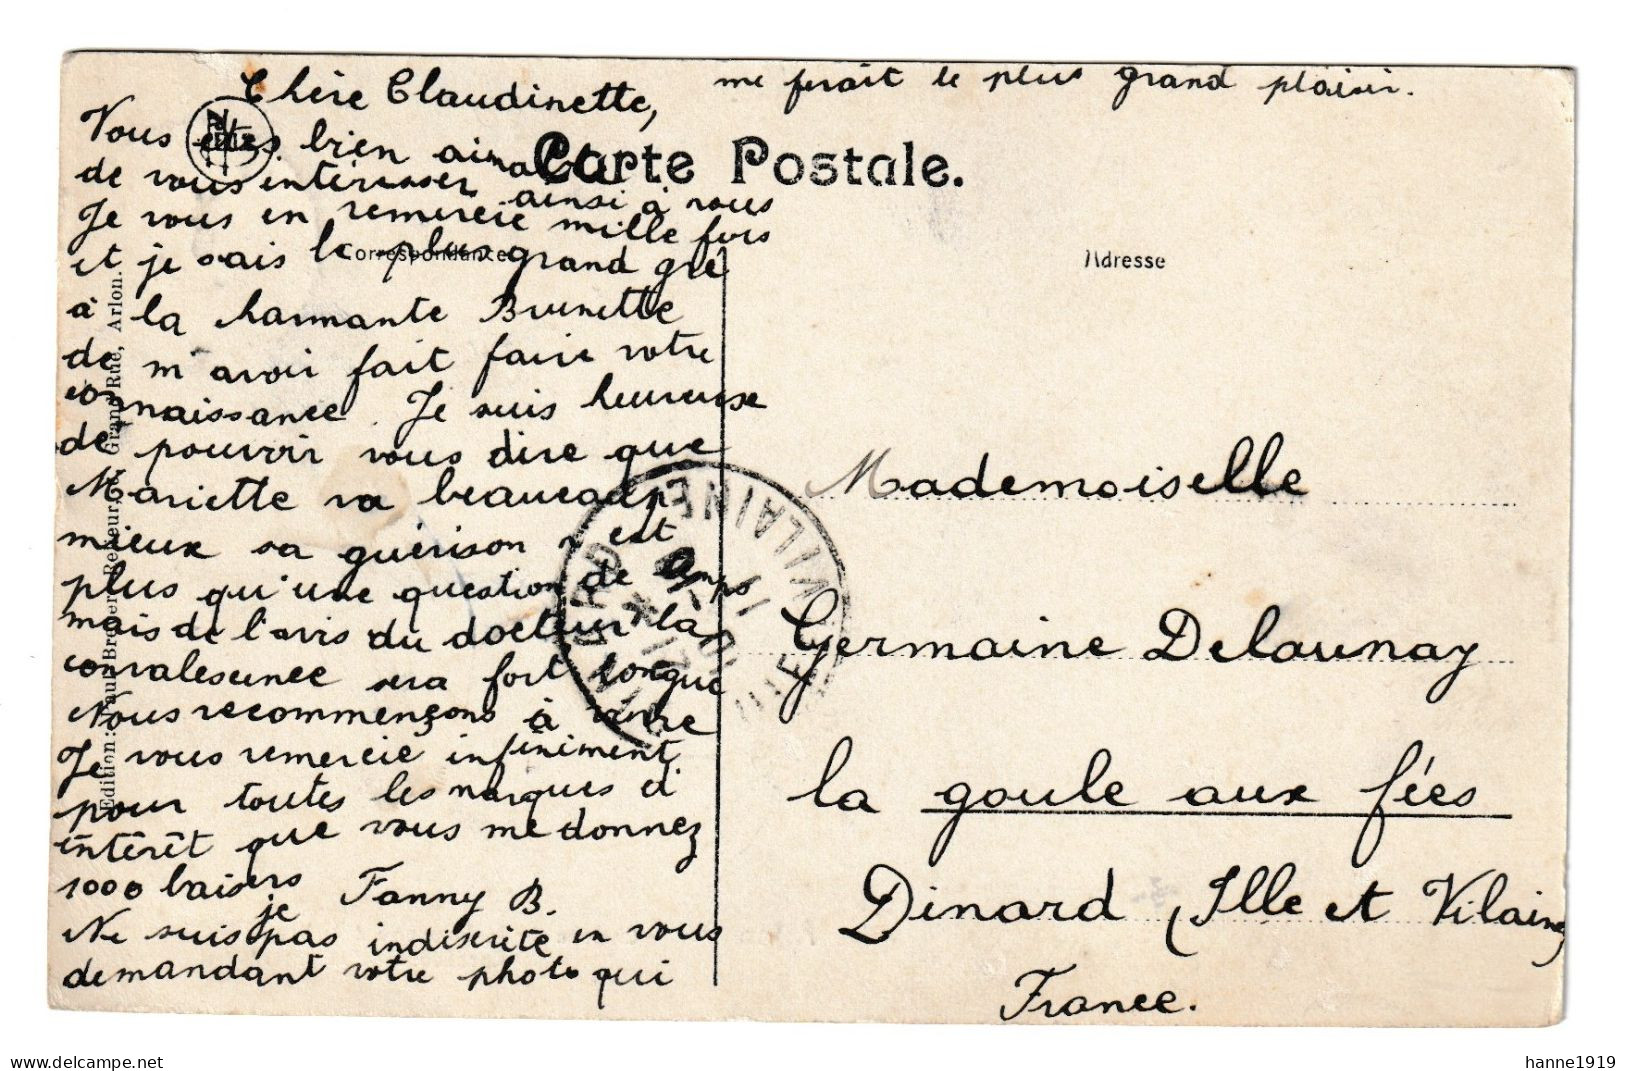 Chère Claudinette,
Vous êtes bien aimable
de vous intéresser ainsi à nous
Je vous en remercie mille fois
et je sais le plus grand gré
à la harmante Brunette
de m'avoir fait faire votre
connaissance. Je suis heureuse
de pouvoir vous dire que
Mariette va beaucoup
mieux sa guérison n'est
plus qu'une question de temps
mais de l'avis du docteur la
convalescence sera fort longue
Nous recommençons à vivre
Je vous remercie infiniment
pour toutes les marques d'
intérêt que vous me donnez
1000 baisers Fanny B.
Ne suis je pas indiscrète en vous
demandant votre photo qui
me ferait le plus grand plaisir.
Carte Postale.
Correspondance
Adresse
Mademoiselle
Germaine Delaunay
la goule aux fées
Dinard (Ille et Vilaine)
France.
Grand'Rue, Arlon.
Edition:
VILAINE
hanne1919
www.delcampe.net